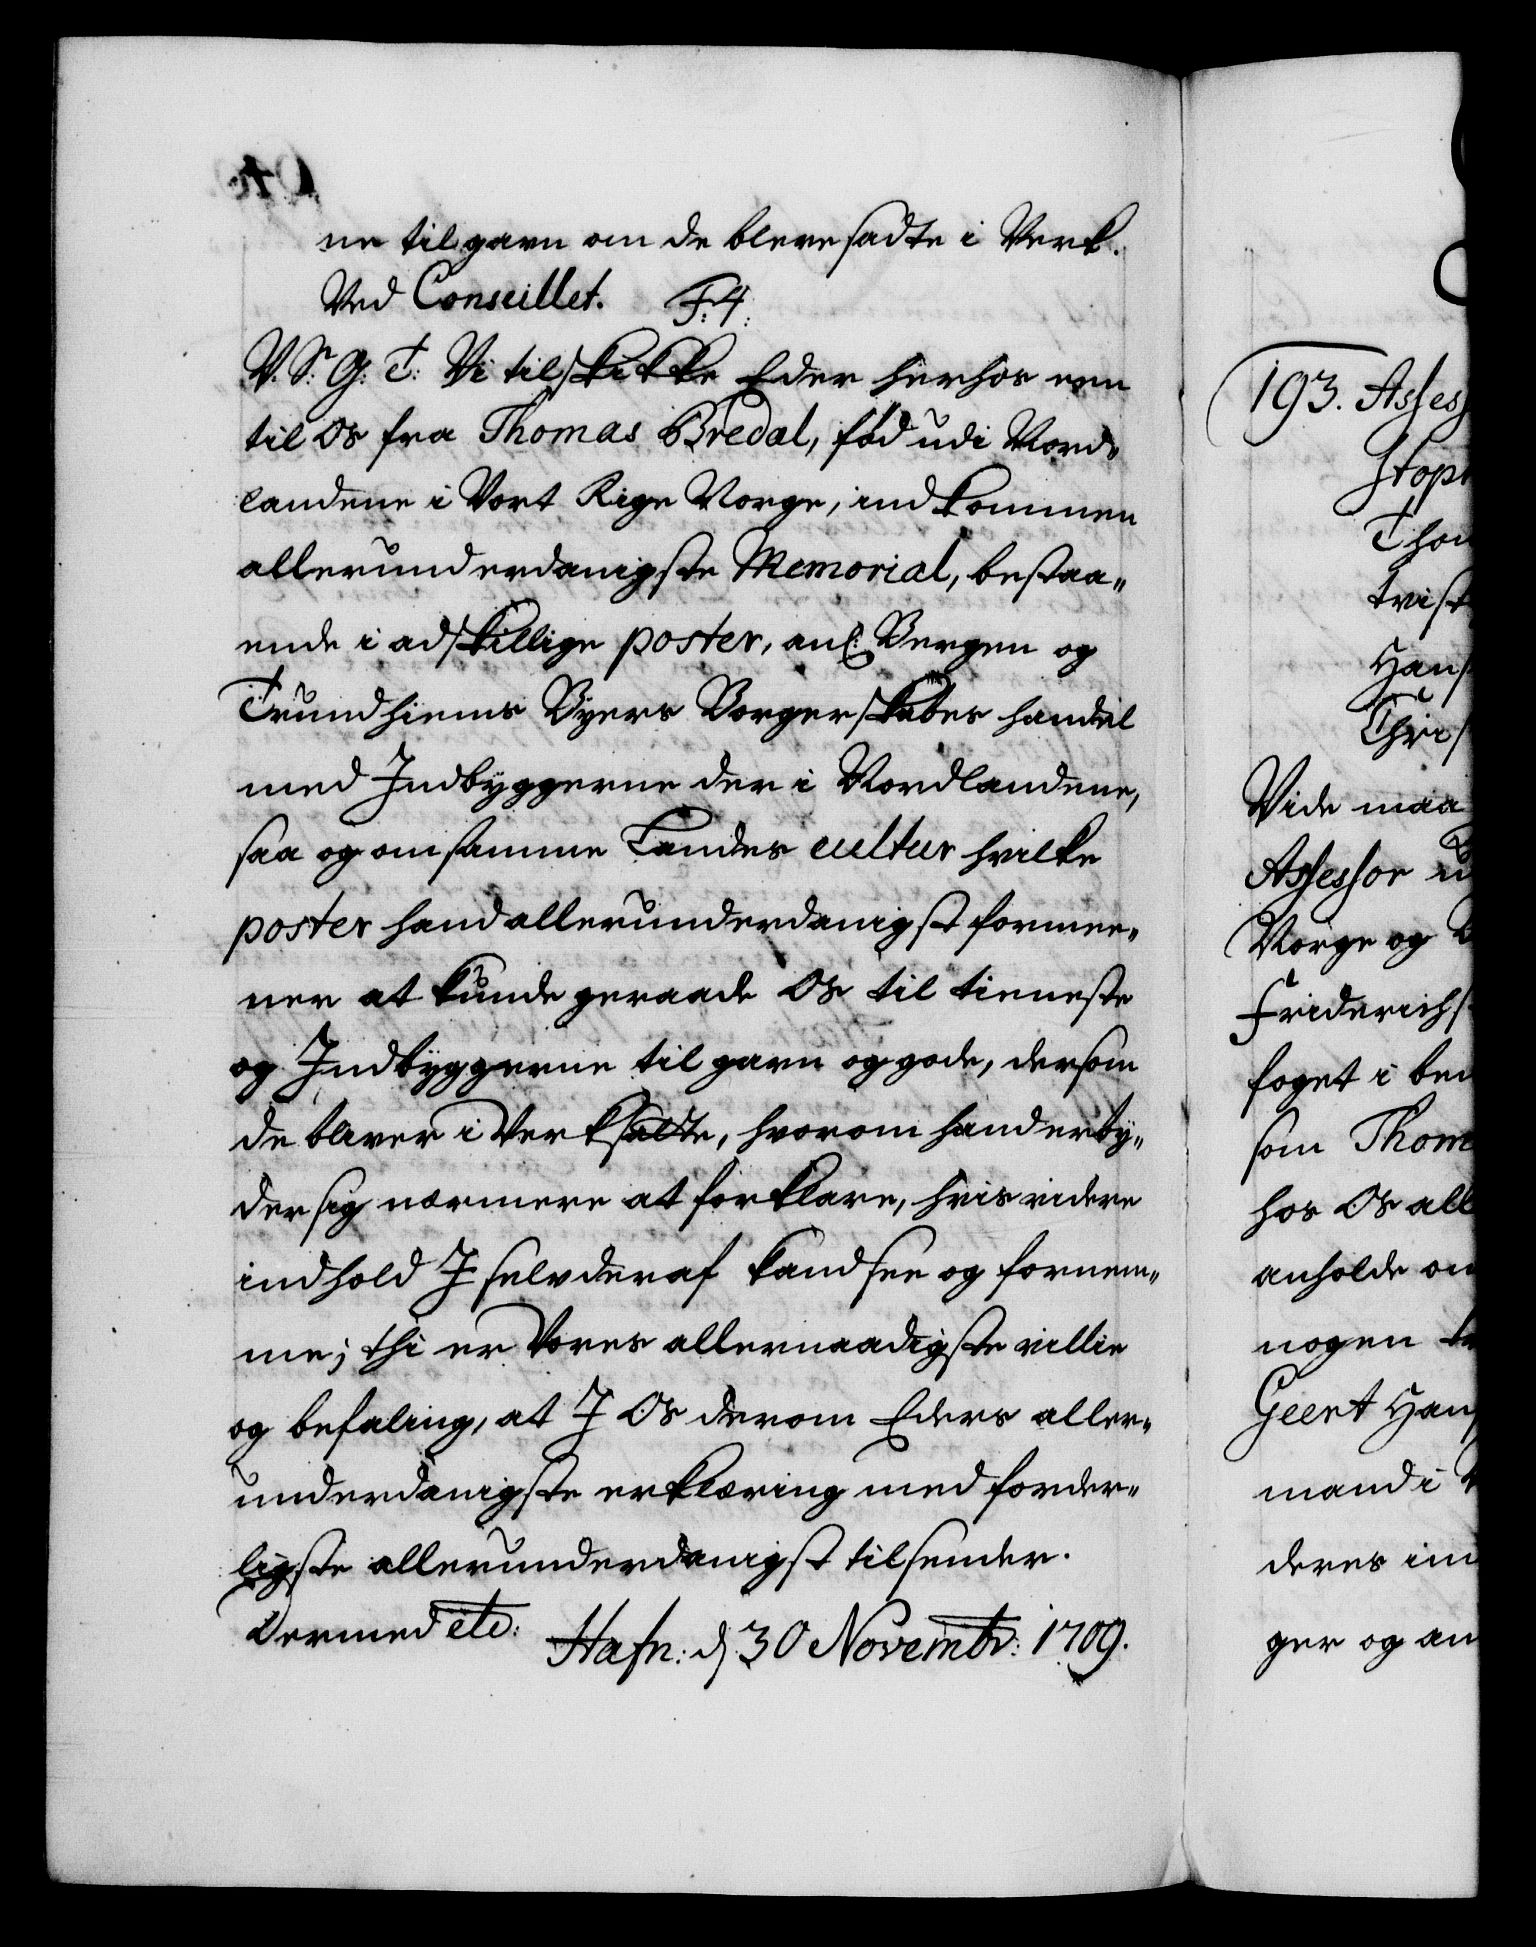 ne til gavn om de bleve sadte i Verk.
Ved Conseillet. F: 4:
V. S: G: T: Vi tilskikke Eder herhos een
til Os fra Thomas Bredal, fød udi Nord„
landene i Vort Rige Norge, ind kommen
allerunderdanigste Memorial, bestaa„
ende i adskillige poster, anl: Bergen og
Trundhiems Byers Borgerskabes handel
med Indbyggerne der i Nordlandene,
saa og om samme Landes cultur hvilke
poster hand allerunderdanigst formee„
ner at kunde geraade Os til tieneste
og Indbyggerne til gavn og gode, dersom
de bliver i Verksatte, hvorom hand erby„
der sig nærmere at forklare, hvis videre
indhold I selv deraf kand see og fornem„
me; thi er Vores allernaadigste villie
og befaling, at I Os derom Eders aller„
underdanigste erklæring med forder„
ligste allerunderdanigst tilsender.
Dermed etc: Hafn: d 30 Novembr: 1709.
193. Assess
stoph
Tho
trist
Hans
Chris
Vide maa
Assessor u
Norge og
Friderichs
foget i be
som Thom
hos Os all
anholde om
nogen
Geert Hans
mand i
deres im
ger og an